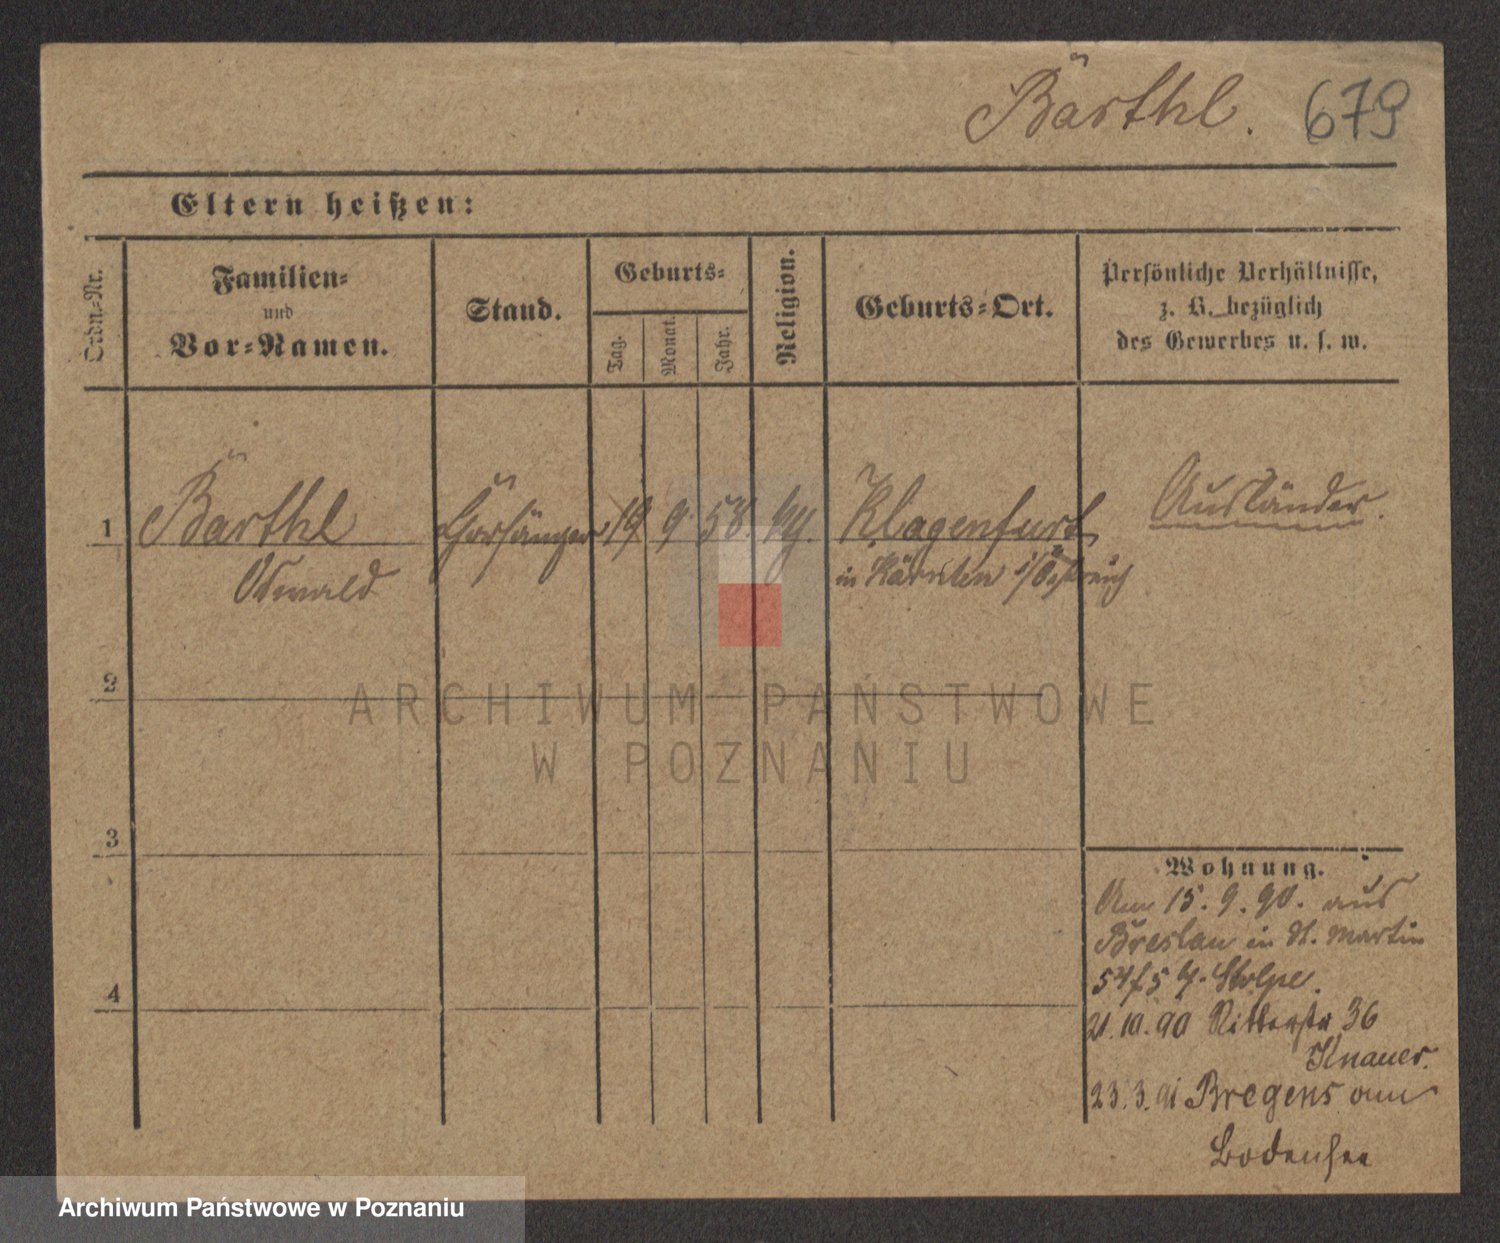 Bärthl. 679
Eltern heißen:
Ordn.-Nr.
Familien-
und
Vor-Namen.
Stand.
Geburts-
Tag.
Monat.
Jahr.
Religion.
Geburts-Ort.
Persönliche Verhältnisse,
z. B. bezüglich
des Gewerbes u. s. w.
1 Bärthl Chorsänger 19 9 58. Klagenfurt Ausländer.
Oswald in Kärnten i/Östreich
2
3
4
ARCHIWUM PAŃSTWOWE
W POZNANIU
Wohnung.
Am 15. 9. 90. aus
Breslau in St. Martin
Stolpe.
21. 10. 90 Ritterstr 36
Knauer.
23. 3. 91 Bregens am
Bodensee
Archiwum Państwowe w Poznaniu